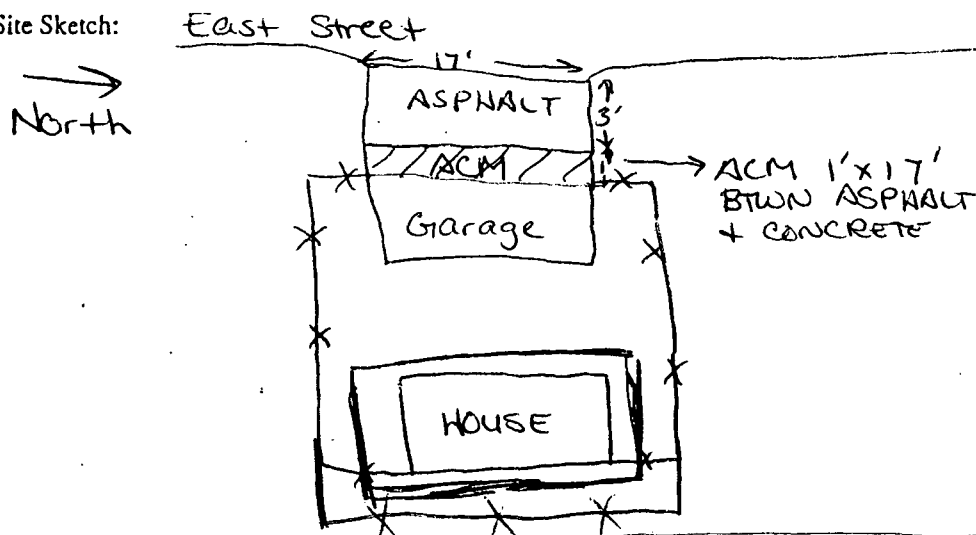 Site Sketch:
East Street
North
17'
ASPHALT
3'
ACM
1'
ACM 1'x17'
BTWN ASPHALT
+ CONCRETE
Garage
HOUSE